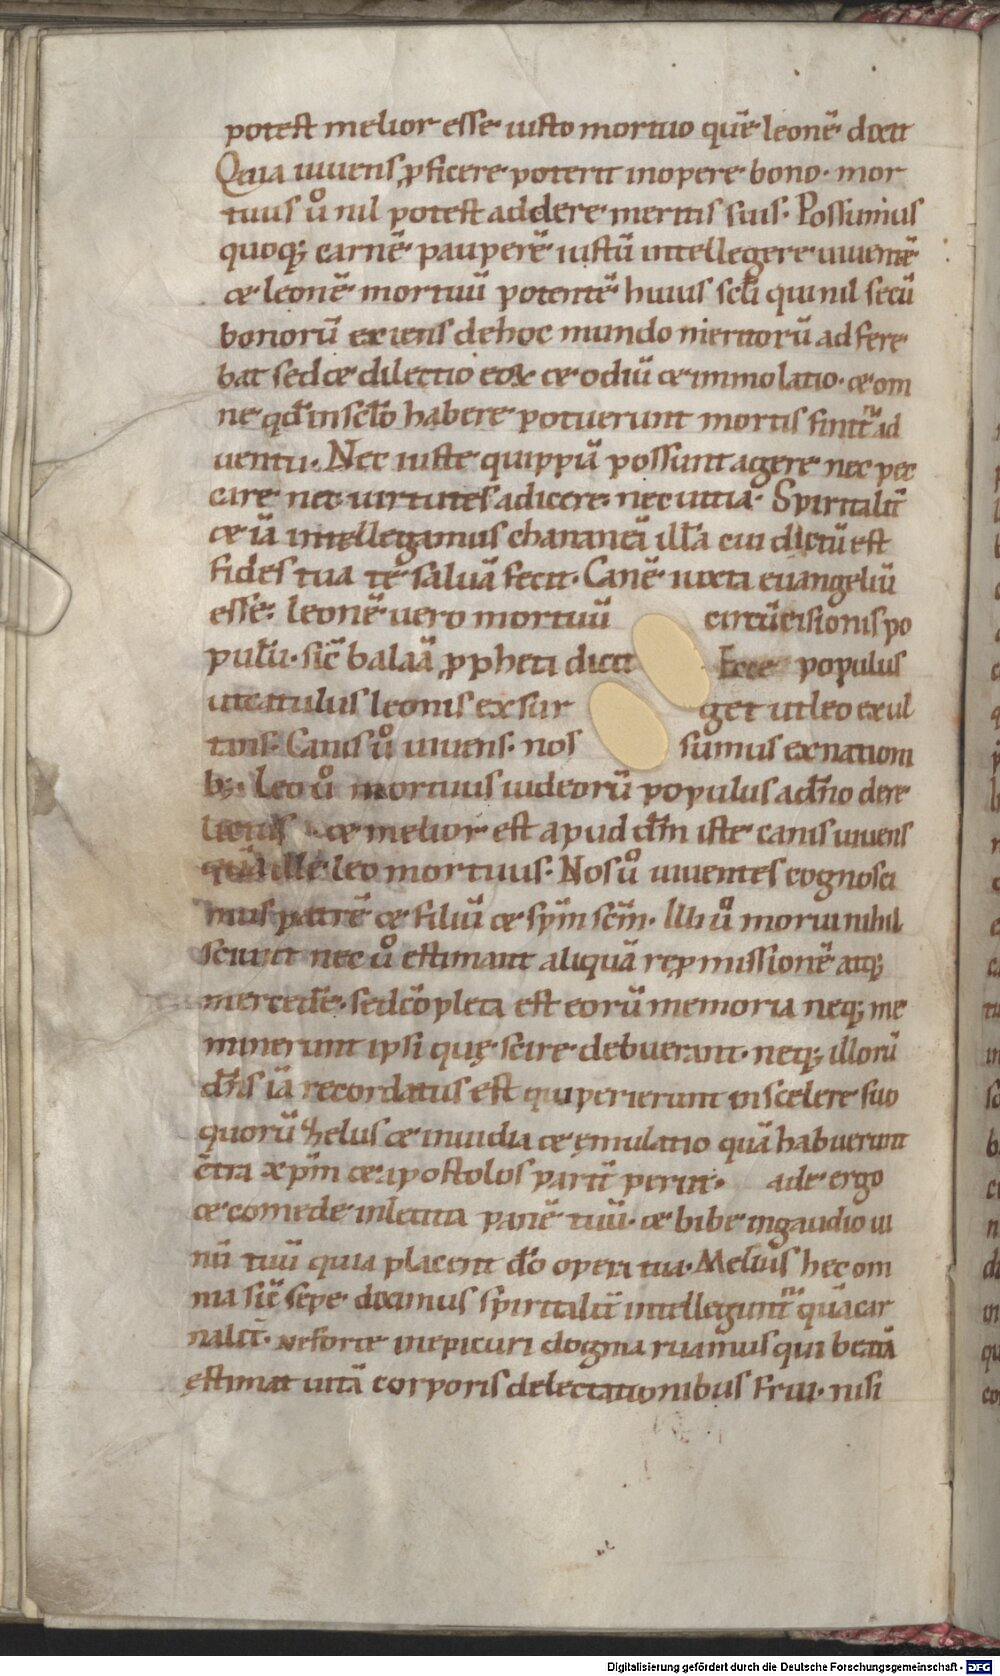 potest melior esse iusto mortuo quē leonē dixit
Quia uiuens ꝓficere poterit inopere bono· mor
tuus ů nil potest addere meritis suis· Possumus
quoq; carnē pauperē iustū intellegere uiuentē
& leonē mortuū potentē huius scl̄i qui nil secū
bonorū exiens dehoc mundo meritorū adfere
bat sed& dilectio eoꝝ & odiū & immolatio· & om
ne qd̄ insclo̅ habere potuerunt mortis finit̄ ad
uentu· Nec iuste quippiā possunt agere nec pec
care nec uirtutes adicere nec uitia· Spiritalit̄
& iā intellegamus chananeā illā cui dictū est
fides tua tē saluā fecit· Canē iuxta euangeliū
esse· leonē uero mortuū circūcisionis po
pulū· sic̄ balaā ꝓpheta dicit Ecce populus
utcatulus leonis exsur get utleo exul
tans· Canis ů uiuens· nos sumus exnationi
b;· Leo ů mortuus iudeorū populus adn̄o dere
lictus & melior est apud dn̄m iste canis uiuens
quā ille leo mortuus· Nos ů uiuentes cognosci
mus patrē & filiū & spm̄ scm̄· Illi ů mortui nihil
sciunt nec ů estimant aliquā reꝓmissionē atq;
mercedē· sedcōpleta est eorū memoria neq; me
minerunt ipsi quę scire debuerant· neq; illorū
dn̄s iā recordatus est qui perierunt in scelere suo
quorū zelus & inuidia & ęmulatio quā habuerunt
c̄tra xp̄m & apostolos parit̄ periit· ade ergo
& comede inletitia panē tuū· & bibe ingaudio ui
nū tuū quia placent dō opera tua· Melius hec om
nia sic̄ sepe diximus spiritalit̄ intellegunt̄ quā car
nalit̄· Neforte inepicuri dogma ruamus qui beatā
estimat uitā corporis delectationibus frui· nisi
Digitalisierung gefördert durch die Deutsche Forschungsgemeinschaft - DFG